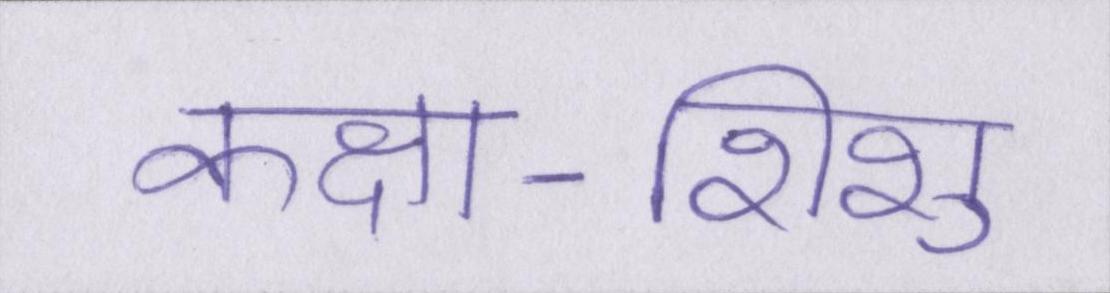 कक्षा-शिशु